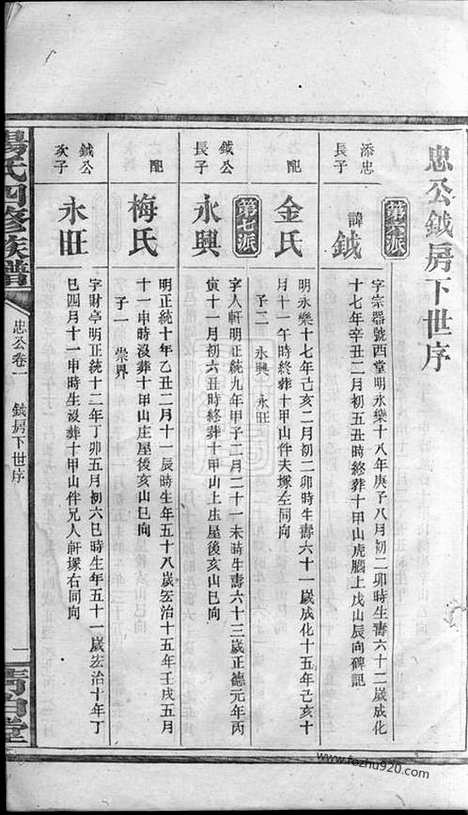 忠公鉞房下世序
第六派
添忠
長子
諱鉞
字宗器號西堂明永樂十八年庚子八月初二卯時生壽六十二歲成化
十七年辛丑二月初五丑時終葬十甲山虎腦上戌山辰向碑記
之配
金氏
明永樂十七年己亥二月初二卯時生壽六十一歲成化十五年己亥十
月十一午時終葬十甲山伴夫塚左同向
子二 永興 永旺
第七派
鉞公
長子
永興
字人軒明正統九年甲子二月二十一未時生壽六十三歲正德元年丙
寅十一月初六丑時終葬十甲山上庄屋後亥山巳向
之配
梅氏
明正統十年乙丑二月十一辰時生年五十八歲宏治十五年壬戌五月
十一申時沒葬十甲山庄屋後亥山巳向
子一 崇界
鉞公
次子
永旺
字財亭明正統十二年丁卯五月初六巳時生年五十一歲宏治十年丁
巳四月十一申時生沒葬十甲山伴兄人軒塚右同向
楊氏四修族譜
忠公卷一 鉞房下世序
一
清白堂
www.fozhu920.com